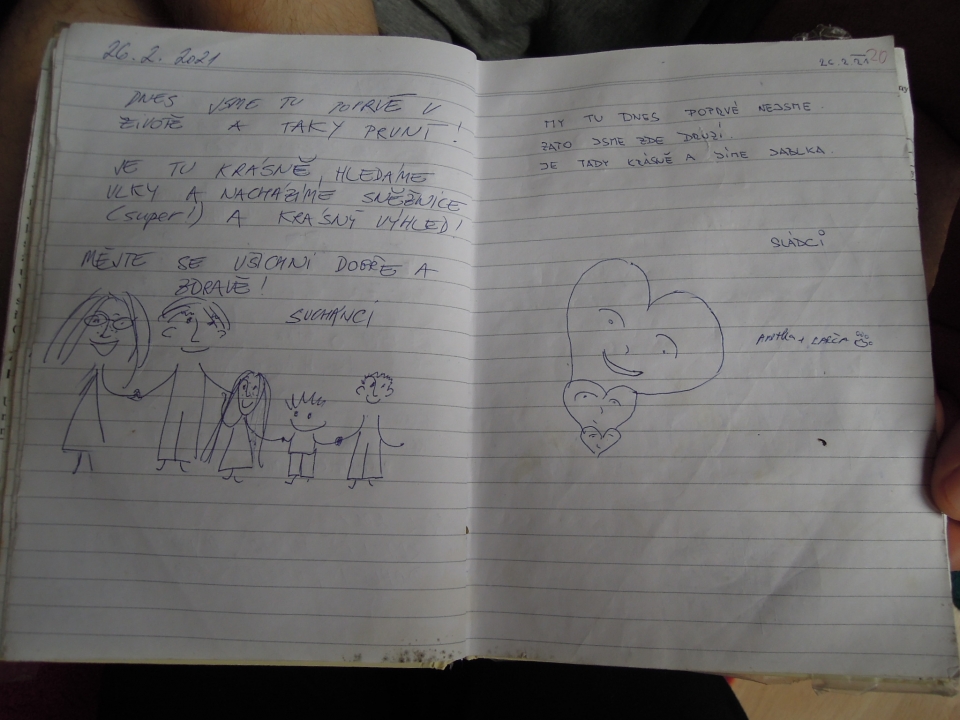 26.2.2021
DNES JSME TU POPRVÉ V
ŽIVOTĚ A TAKY PRVNÍ!
JE TU KRÁSNĚ, HLEDÁME
VLKY A NACHÁZÍME SNĚŽNICE
(super!) A KRÁSNÝ VÝHLED!
MĚJTE SE VŠICHNI DOBŘE A
ZDRAVĚ!
SUCHÁNCI
20
MY TU DNES POPRVÉ NEJSME.
ZATO JSME ZDE DRUZÍ.
JE TADY KRÁSNĚ A JÍME JABLKA.
SLÁDCI